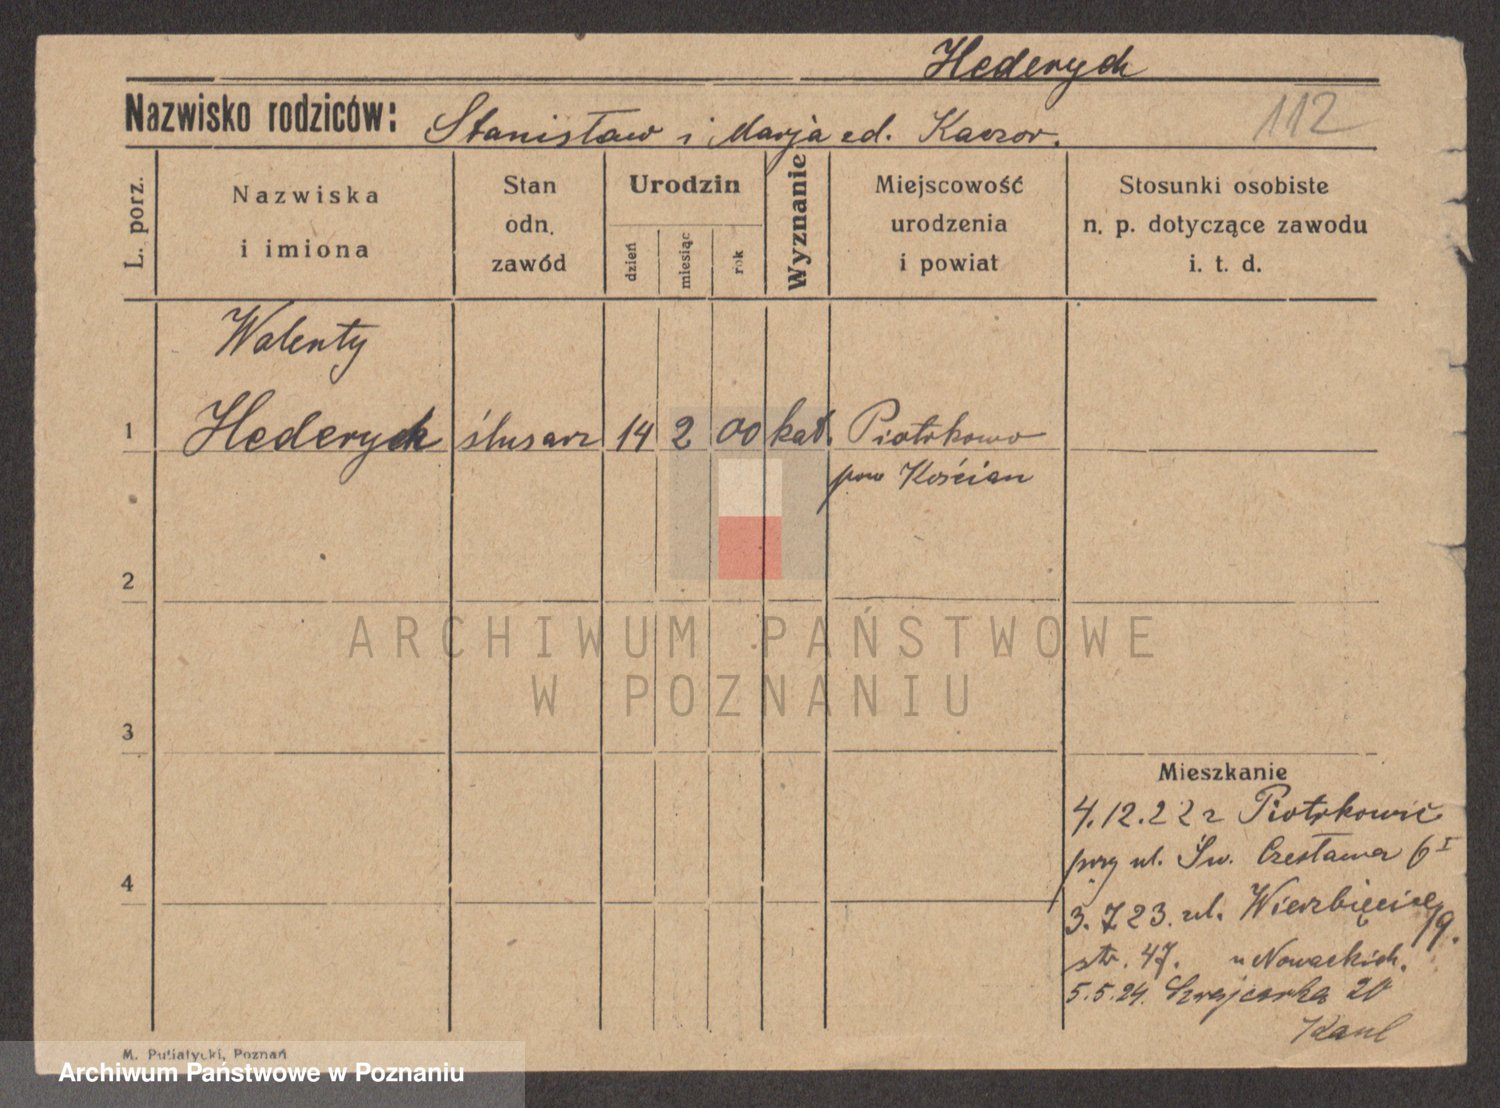 Hederych
Nazwisko rodziców: Stanisław i Marja ed. Kaczor.
112
L. porz.
Nazwiska
i imiona
Stan
odn.
zawód
Urodzin
dzień
miesiąc
rok
Wyznanie
Miejscowość
urodzenia
i powiat
Stosunki osobiste
n. p. dotyczące zawodu
i. t. d.
Walenty
1 Hederych ślusarz 14 2 00 kat. Piotrkowo
pow Kościan
2
ARCHIWUM PAŃSTWOWE
W POZNANIU
3
Mieszkanie
4.12.22 z Piotrkowic
przy ul. Św. Czesława 6 I
4
3.7.23. ul. Wierzbięcice
str. 47. u Nowackich. 19.
5.5.24. Szwajcarska 20
M. Putiatycki, Poznań
Archiwum Państwowe w Poznaniu